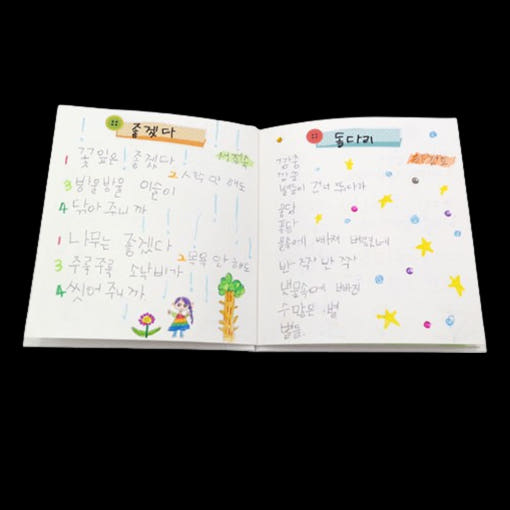 좋겠다
1 꽃잎은 좋겠다
2 세수 안 해도
3 방울방울 이슬이
4 닦아 주니까
1 나무는 좋겠다
2 목욕 안 해도
3 주룩주룩 소낙비가
4 씻어 주니까
돌다리
깡충
깡충
별들이 건너 뛰다가
퐁당
퐁당
물속에 빠져 버렸네
반짝 반짝
냇물속에 빠진
수많은 별
별들.